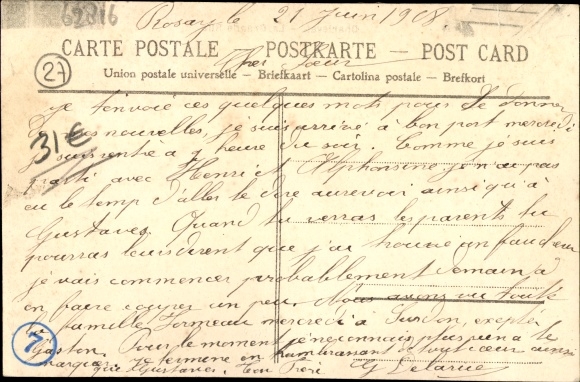 62816
Rosay le 21 Juin 1908
CARTE POSTALE — POSTKARTE — POST CARD
Union postale universelle — Briefkaart — Cartolina postale — Brefkort
27
Chère Sœur
je t'envoie ces quelques mots pour te donner
nouvelles, je suis arrivé à bon port mercredi
je suis rentré à 9 heure du soir. Comme je suis
31€
parti avec Henri et Alphonsine je n'ai pas
eu le temp d'aller te dire aurevoir ainsi qu'à
Gustave. Quand tu verras les parents tu
pourras leurs dirent que j'ai trouvé un faucheur
je vais commencer probablement demain à
en faire couper un peu. Nous avons vu toute
la famille mercredi à excepter
Gaston. Pour le moment je n'en connais plus rien à te
marquer. Je termine en t'embrassant de tout cœur ainsi
que Gustave. Ton Frère
G Delarue
7